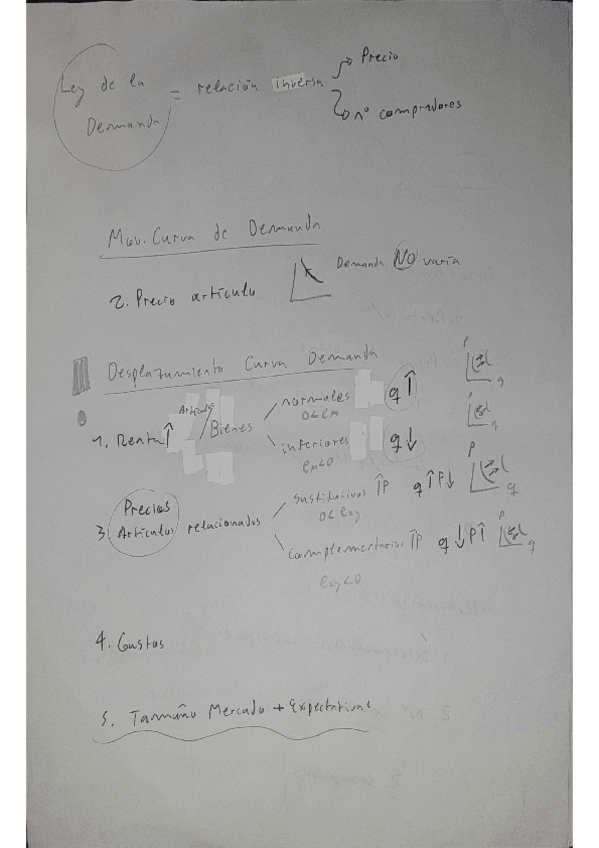 Precio
Ley de la = relación inversa
Demanda
nº compradores
Mov. Curva de Demanda
Demanda NO varía
2. Precio artículo
Desplazamiento Curva Demanda
P
q
Artículos
1. Renta ↑ / Bienes
normales q ↑
0<em
P
q
inferiores q ↓
em<0
Precios
3. Artículos relacionados
sustitutivos ↑P q ↑ P ↓
0<exy
P
q
complementarios ↑P q ↓ P ↑
exy<0
P
q
4. Gustos
5. Tamaño Mercado + Expectativas